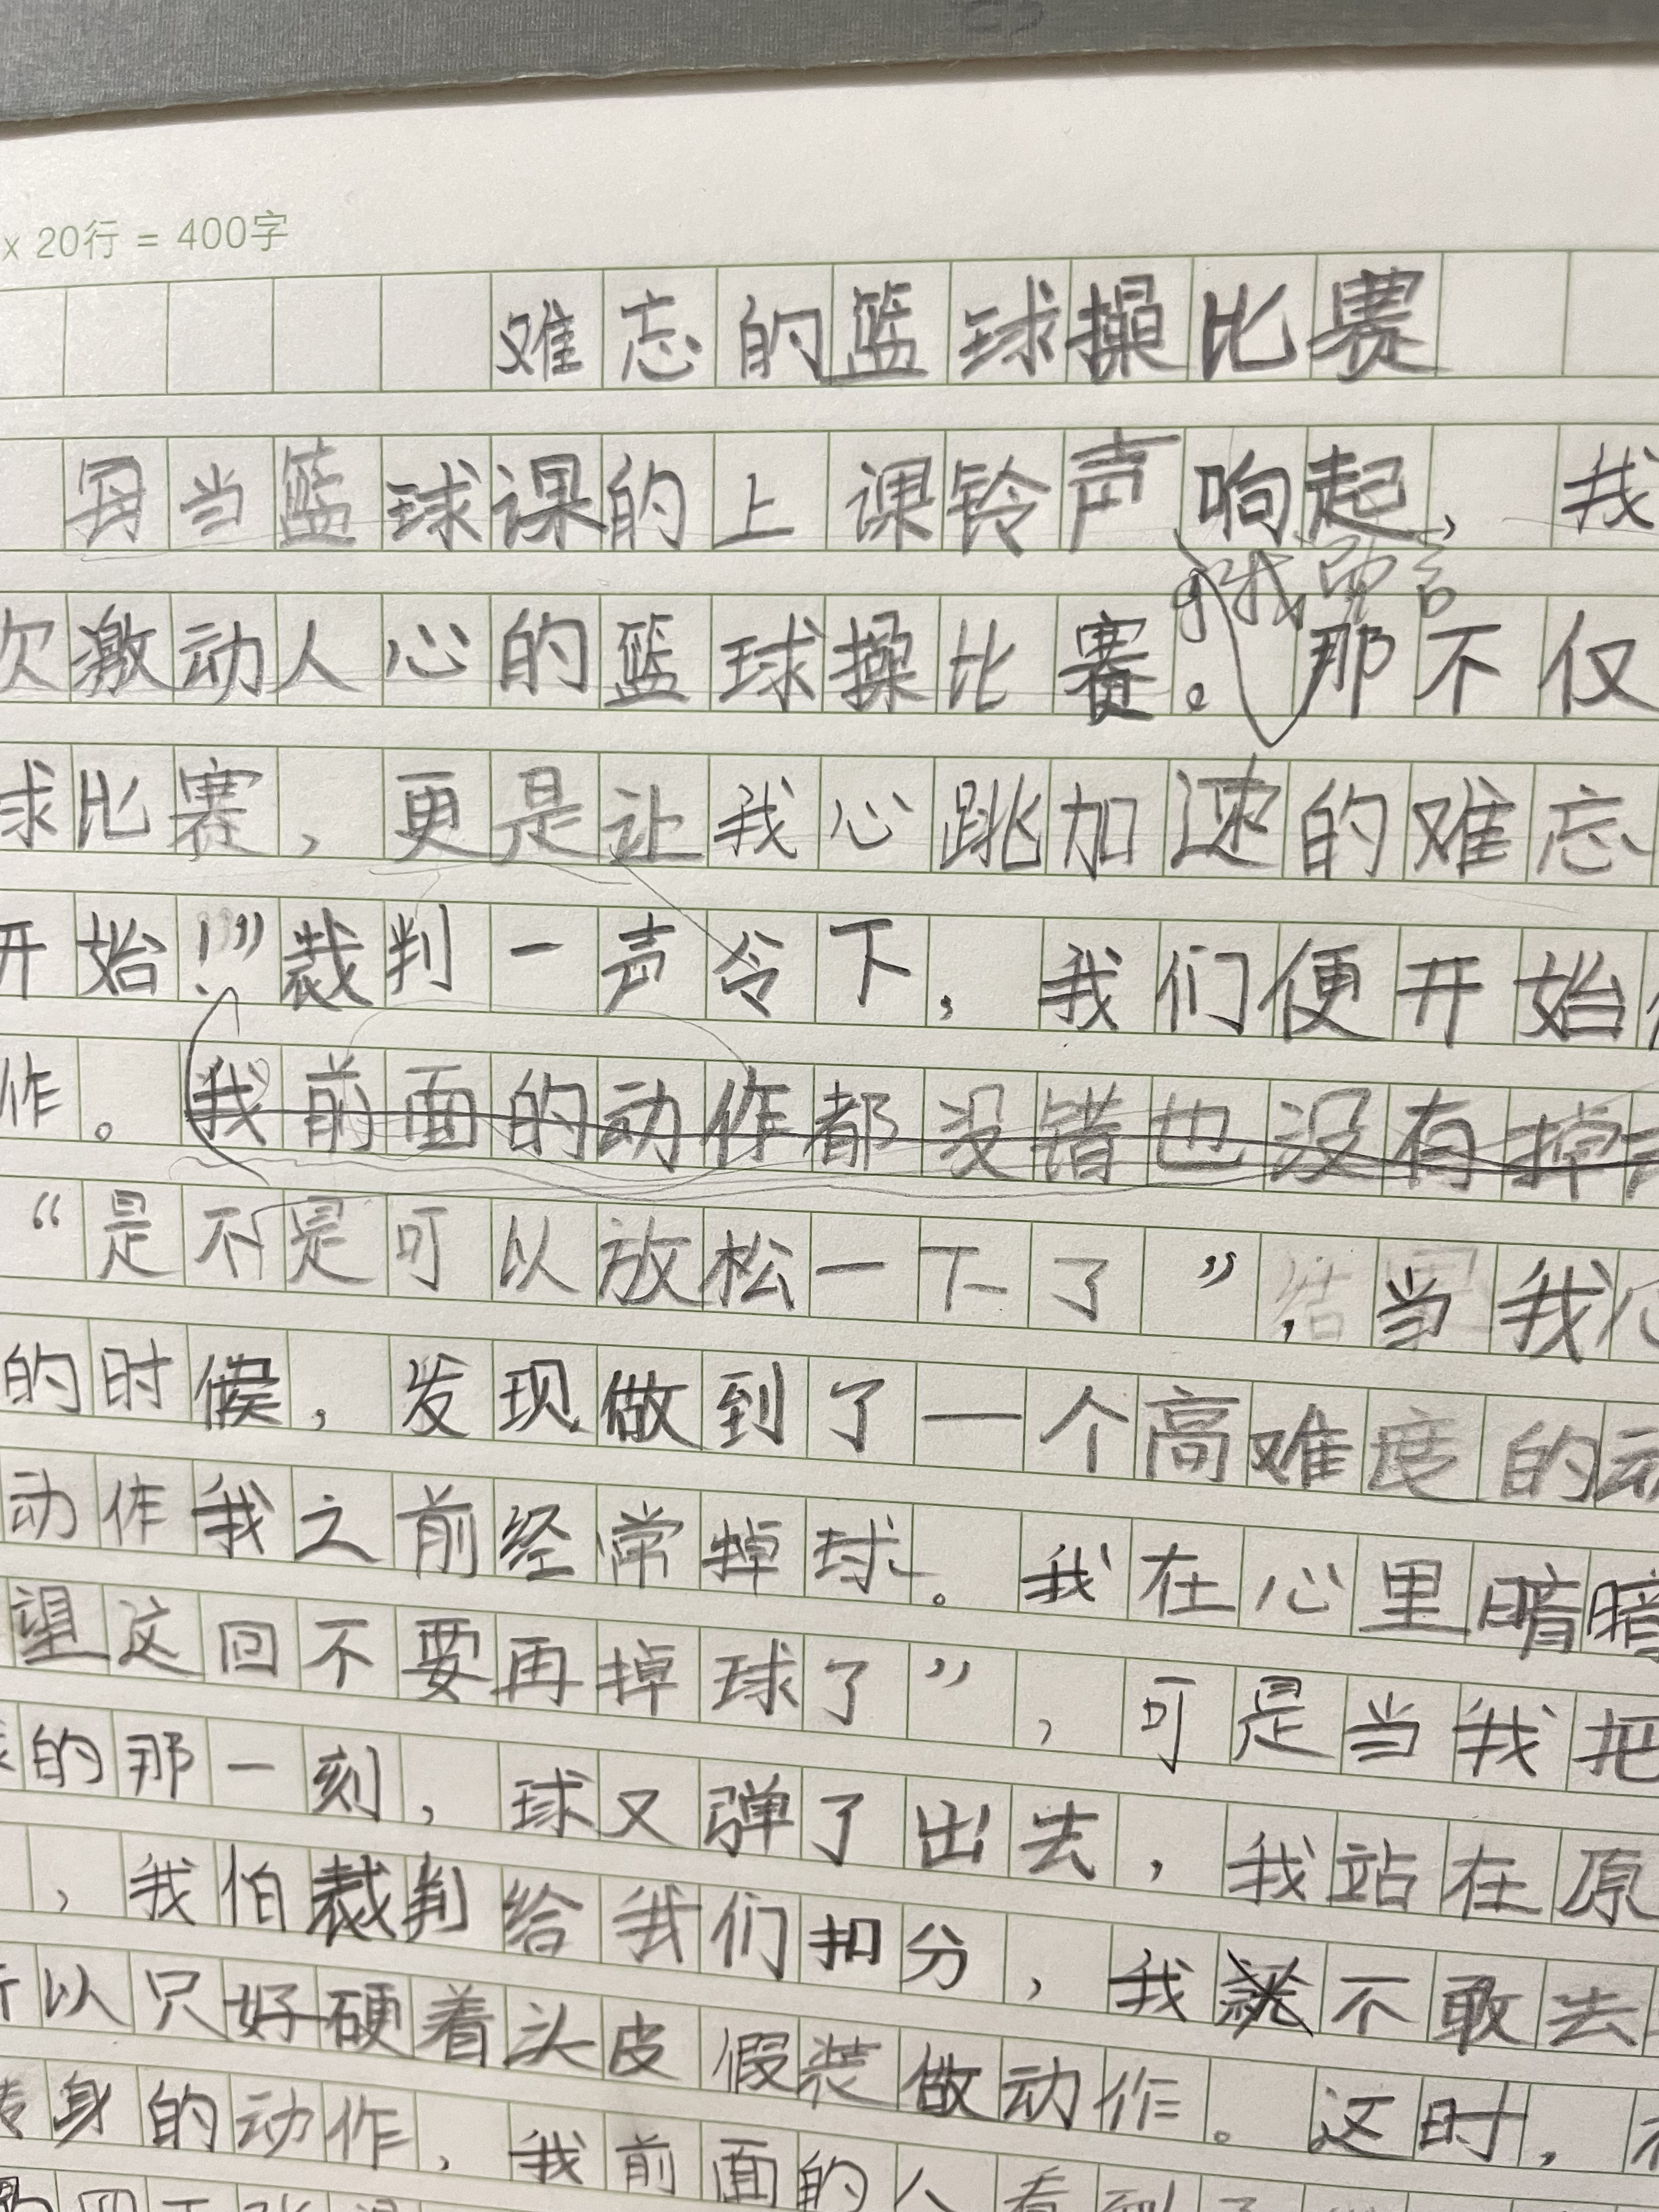 x 20行 = 400字
难忘的篮球操比赛
每当篮球课的上课铃声响起，我
次激动人心的篮球操比赛。那不仅
对我而言
球比赛，更是让我心跳加速的难忘
开始！”裁判一声令下，我们便开始
作。我前面的动作都没错也没有掉
“是不是可以放松一下了”，当我
的时候，发现做到了一个高难度的动
动作我之前经常掉球。我在心里暗暗
望这回不要再掉球了”，可是当我把
的那一刻，球又弹了出去，我站在原
，我怕裁判给我们扣分，我不敢去
所以只好硬着头皮假装做动作。这时，
转身的动作，我前面的人看到了